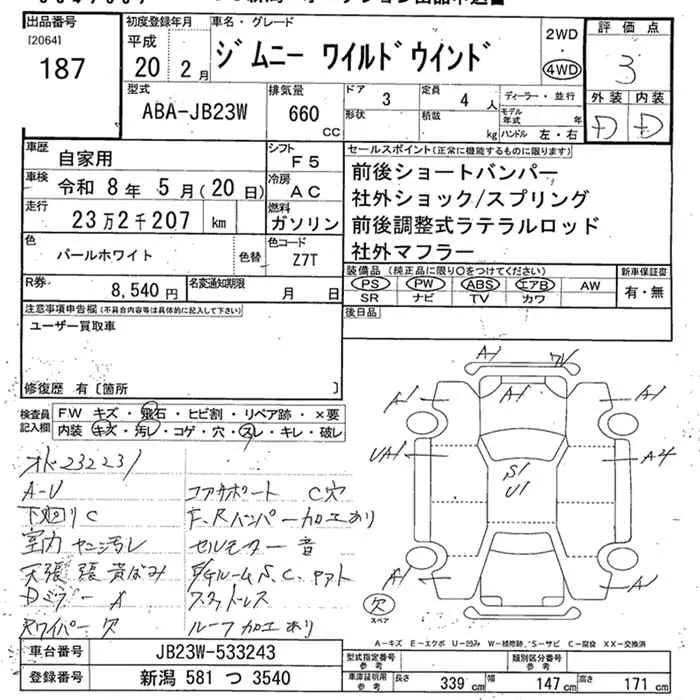 出品番号
[2064]
187
初度登録年月
平成
20年 2月
車名・グレード
ジムニー ワイルドウインド
2WD
・
4WD
評価点
3
外装 内装
D D
型式
ABA-JB23W
排気量
660 CC
ドア 3
形状
定員 4 人
積載 kg
ディーラー・並行
モデル年式 年
ハンドル 左・右
車歴
自家用
シフト
F5
車検
令和 8年 5月(20日)
冷房
AC
走行
23万2千207 km
燃料
ガソリン
色
パールホワイト
色替
色コード
Z7T
R券
8,540円
名変通知期限
月 日
セールスポイント(正常に機能するものに限ります)
前後ショートバンパー
社外ショック/スプリング
前後調整式ラテラルロッド
社外マフラー
装備品(純正品に限り○をつけてください)
PS PW ABS エアB AW
SR ナビ TV カワ
新車保証書
有・無
後日品
注意事項申告欄(不具合内容等は具体的に記入して下さい)
ユーザー買取車
修復歴 有〔箇所 〕
検査員記入欄
F.W キズ・飛石・ヒビ割・リペア跡・×要
内装 キズ・汚レ・コゲ・穴・スレ・キレ・破レ
オド232231
A-U
下廻リC
室内 ヤニ汚レ
天張 張 黄ばみ
Dミラー A
Rワイパー欠
コアサポート C穴
F.Rバンパー加工あり
セルモーター 音
スタットレス
ルーフ加工あり
A1
A1
A1
A1
UA1
A4
S1
U1
A1
A1
欠
スペア
A-キズ E-エクボ U-凹み W-補修跡 S-サビ C-腐食 XX-交換済
車台番号
JB23W-533243
登録番号
新潟 581 つ 3540
型式指定番号
参考
類別区分番号
参考
車庫証明用
参考
長さ 339 cm
幅 147 cm
高さ 171 cm